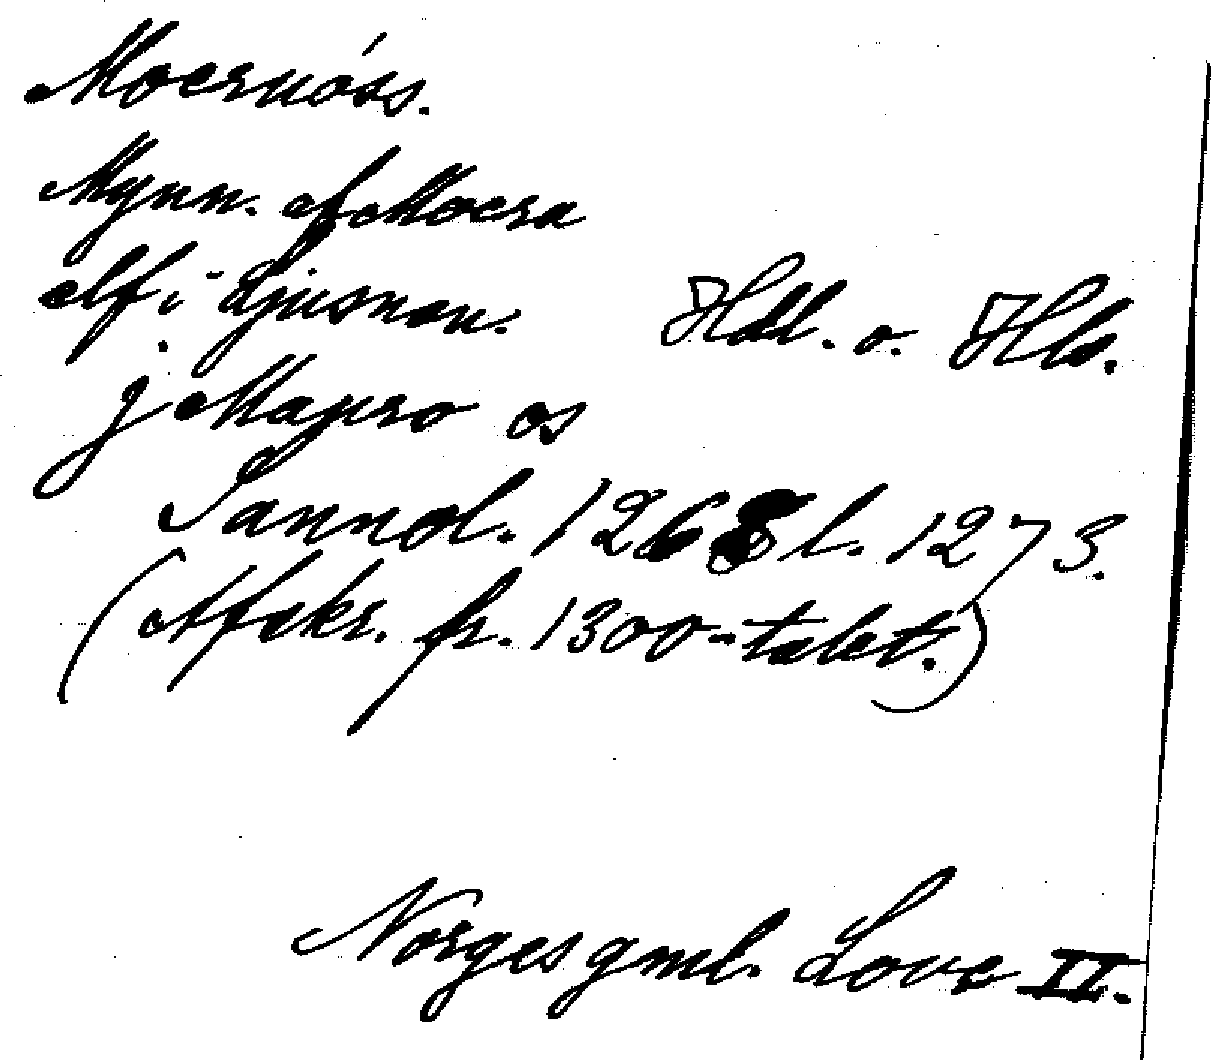 Moeruóss.
Mynn. af Moera
elf i Ljusnan. Hdl. o. Hls.
J Mapro os
Sannol. 1268 l. 1273.
(Afskr. fr. 1300-talet.)
Norges gml. Love II.